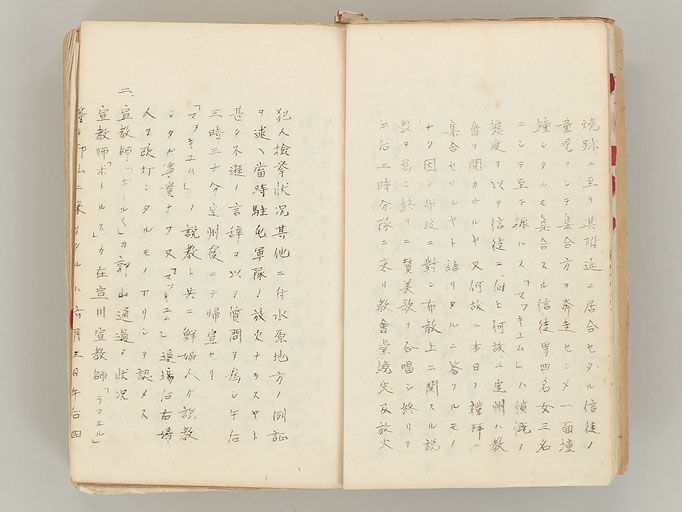 焼跡ニ至リ其附近ニ居合セタル信徒ノ
童児ヲシテ集合方ヲ奔走セシメ一面撞
鐘シタルモ集合スル信徒男四名女三名
ニシテ至テ振ハス「マツキユム」ハ憤慨ノ
態度ヲ以テ信徒ニ向ヒ何故ニ定州ハ教
會ヲ開カサルヤ又何故ニ本日ノ禮拜ニ
集合セサルヤト詰リタルニ答フルモノ
ナク因テ布教ニ對シ布教上ニ関スル説
教ヲ為シ終リニ賛美歌ヲ合唱シ終リテ
午后二時分隊ニ来リ教會堂燒失及放火
犯人檢挙状况其他ニ付水原地方ノ例証
ヲ述ヘ当時駐屯軍隊ノ放火ナラスヤト
甚タ不遜ノ言辞ヲ以テ質問ヲ為シ午后
三時三十分定州發ニテ帰宣セリ
「マツキユム」ノ説教ト共ニ鮮婦人カ説教
シタル事實ナク又「マツキユム」退場ノ右
人ヲ殴打シタルモノナリシヲ認メス
二、宣教師「ポールス」カ郭山通過ノ状况
宣教師「ポールス」カ在宣川宣教師「ラフエル」
等ト郭山ニ来リタルハ六月三日午后四